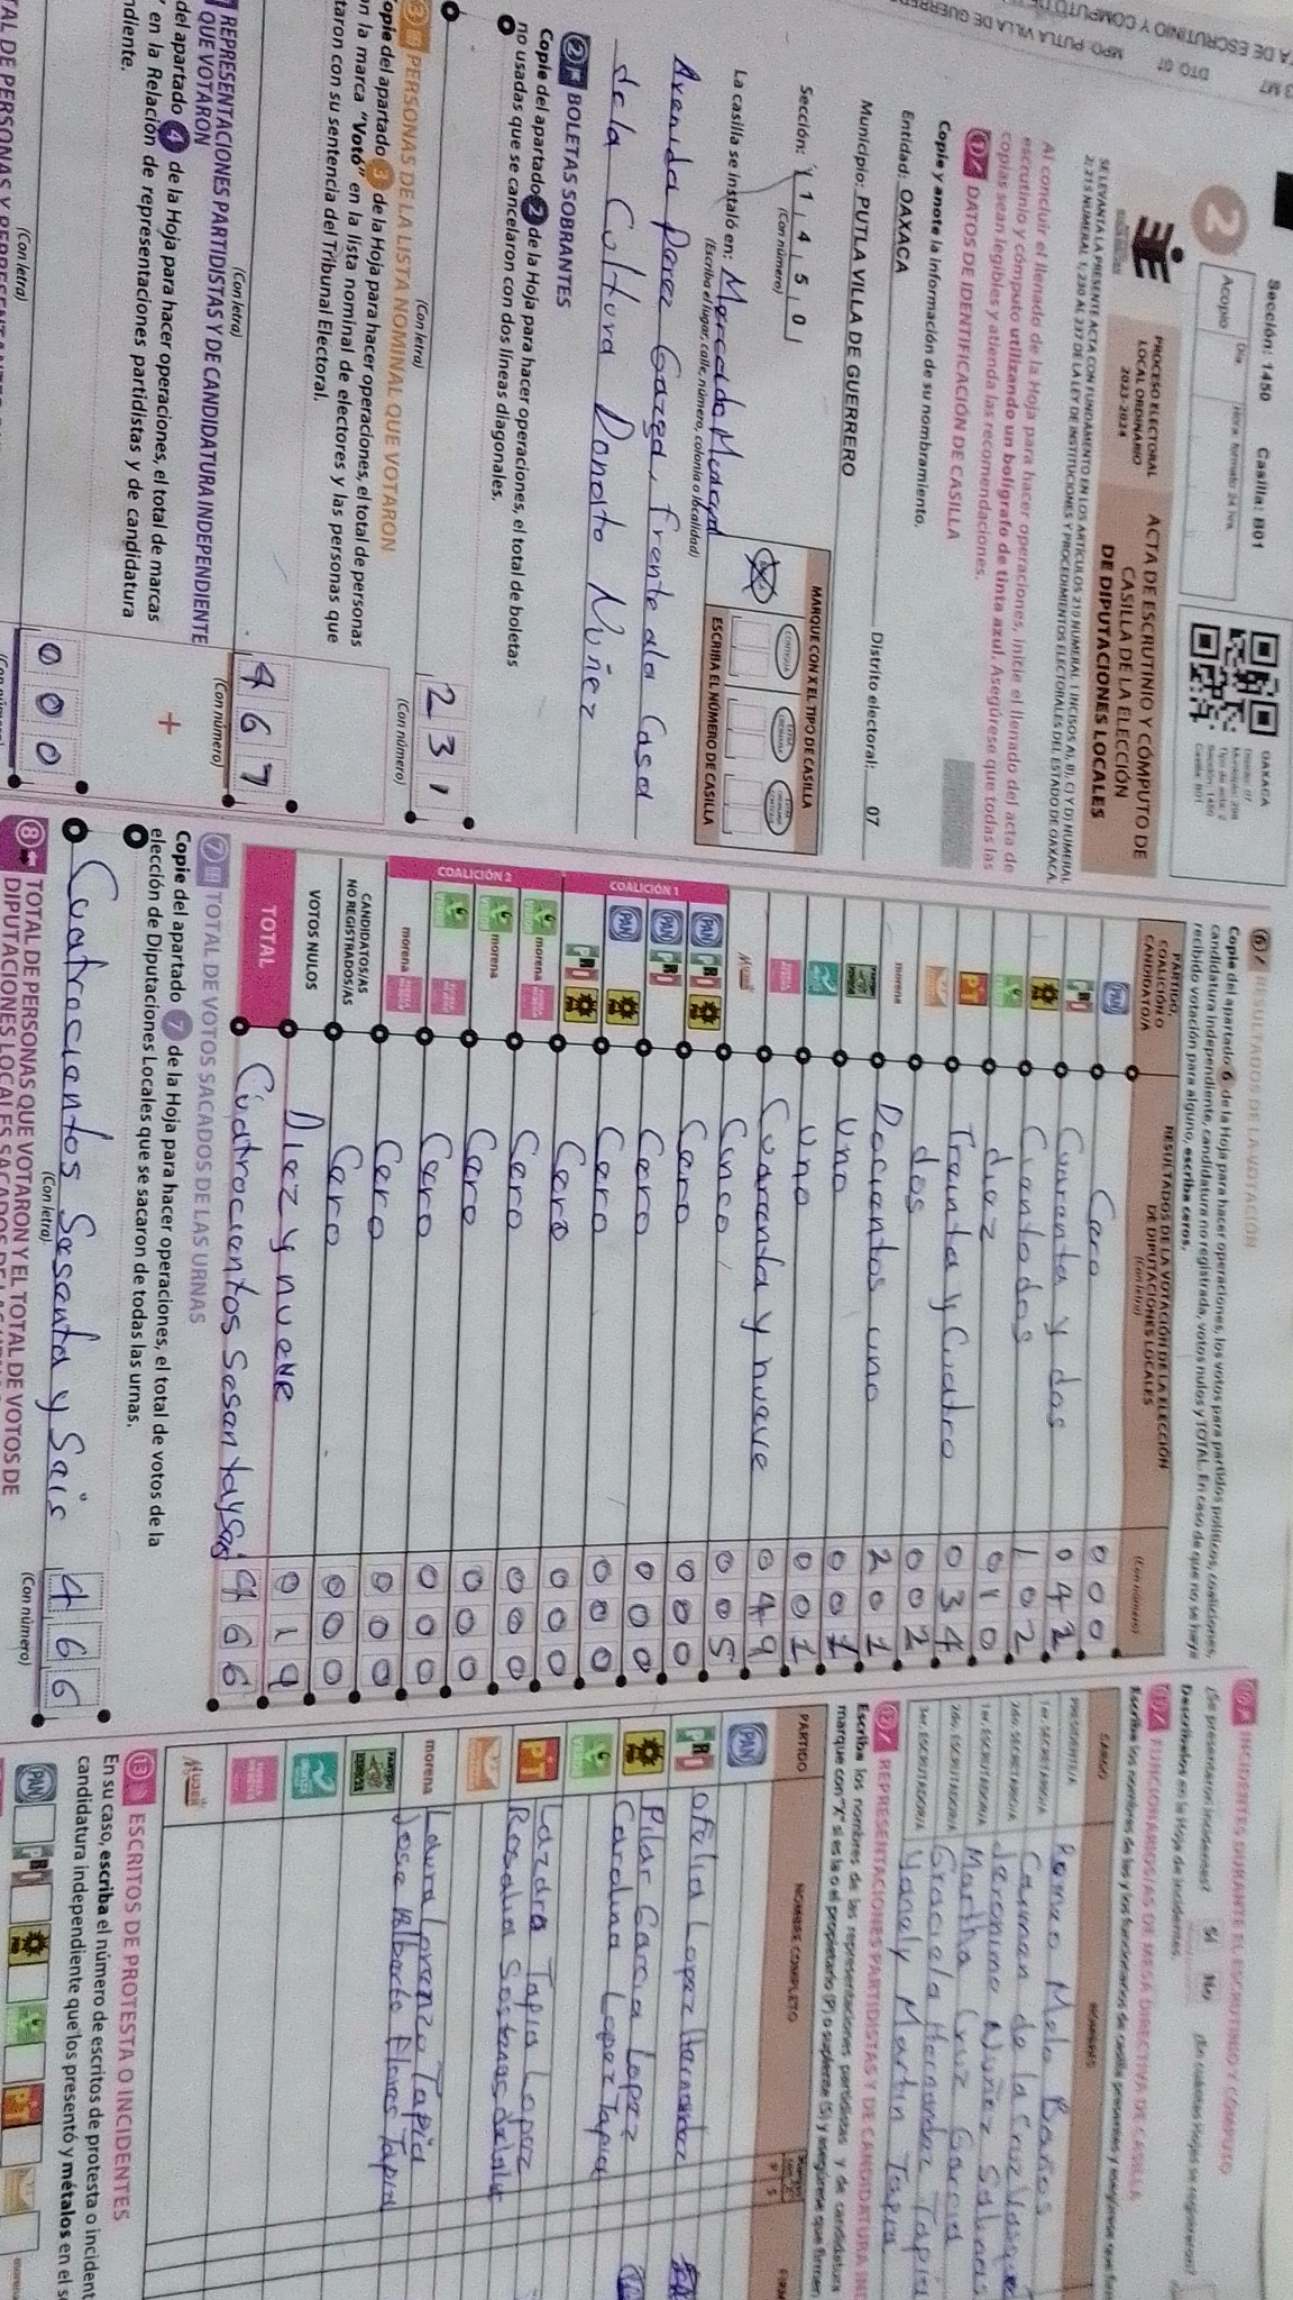 Sección: 1450 Casilla: B01
Acopio
Día
Hora formato 24 hrs.
2
OAXACA
Distrito: 07
Tipo de acta: 2
Sección: 1450
Casilla: B01
PROCESO ELECTORAL
LOCAL ORDINARIO
2023-2024
ACTA DE ESCRUTINIO Y CÓMPUTO DE
CASILLA DE LA ELECCIÓN
DE DIPUTACIONES LOCALES
SE LEVANTA LA PRESENTE ACTA CON FUNDAMENTO EN LOS ARTÍCULOS 210 NUMERAL 1 INCISOS A), B), C) Y D) NUMERAL
2; 215 NUMERAL 1; 230 AL 237 DE LA LEY DE INSTITUCIONES Y PROCEDIMIENTOS ELECTORALES DEL ESTADO DE OAXACA.
Al concluir el llenado de la Hoja para hacer operaciones, inicie el llenado del acta de
escrutinio y cómputo utilizando un bolígrafo de tinta azul. Asegúrese que todas las
copias sean legibles y atienda las recomendaciones.
1 DATOS DE IDENTIFICACIÓN DE CASILLA
Copie y anote la información de su nombramiento.
Entidad: OAXACA Distrito electoral: 07
Municipio: PUTLA VILLA DE GUERRERO
Sección: 1 4 5 0
(Con número)
MARQUE CON X EL TIPO DE CASILLA
CONTIGUA
ESCRIBA EL NÚMERO DE CASILLA
La casilla se instaló en: Mercado Municipal
(Escriba el lugar, calle, número, colonia o localidad)
Avenida Perez Gazga, frente ala Casa
de la Cultura Donato Nuñez
2 BOLETAS SOBRANTES
Copie del apartado 2 de la Hoja para hacer operaciones, el total de boletas
no usadas que se cancelaron con dos líneas diagonales.
2 3 1
(Con letra) (Con número)
3 PERSONAS DE LA LISTA NOMINAL QUE VOTARON
Copie del apartado 3 de la Hoja para hacer operaciones, el total de personas
con la marca "Votó" en la lista nominal de electores y las personas que
votaron con su sentencia del Tribunal Electoral.
4 6 7
(Con letra) (Con número)
REPRESENTACIONES PARTIDISTAS Y DE CANDIDATURA INDEPENDIENTE
QUE VOTARON
del apartado 4 de la Hoja para hacer operaciones, el total de marcas
en la Relación de representaciones partidistas y de candidatura
+
0 0 0
(Con letra)
6 RESULTADOS DE LA VOTACIÓN
Copie del apartado 6 de la Hoja para hacer operaciones, los votos para partidos políticos, coaliciones,
candidatura independiente, candidatura no registrada, votos nulos y TOTAL. En caso de que no se haya
recibido votación para alguno, escriba ceros.
PARTIDO, COALICIÓN O CANDIDATO/A
RESULTADOS DE LA VOTACIÓN DE LA ELECCIÓN DE DIPUTACIONES LOCALES
(Con letra) (Con número)
PAN Cero 0 0 0
PRI Cuarenta y dos 0 4 2
PRD Ciento dos 1 0 2
VERDE diez 0 1 0
PT Treinta y Cuatro 0 3 4
dos 0 0 2
morena Docientos uno 2 0 1
uno 0 0 1
uno 0 0 1
Cuarenta y nueve 0 4 9
Mujer Cinco 0 0 5
COALICIÓN 1
PAN PRI PRD Cero 0 0 0
PAN PRI Cero 0 0 0
PAN PRD Cero 0 0 0
PRI PRD Cero 0 0 0
COALICIÓN 2
VERDE morena Cero 0 0 0
VERDE morena Cero 0 0 0
VERDE Cero 0 0 0
morena Cero 0 0 0
CANDIDATOS/AS NO REGISTRADOS/AS Cero 0 0 0
VOTOS NULOS Diez y nueve 0 1 9
TOTAL Cuatrocientos Sesenta y Seis 4 6 6
7 TOTAL DE VOTOS SACADOS DE LAS URNAS
Copie del apartado 7 de la Hoja para hacer operaciones, el total de votos de la
elección de Diputaciones Locales que se sacaron de todas las urnas.
Cuatrocientos Sesenta y Seis 4 6 6
(Con letra) (Con número)
8 TOTAL DE PERSONAS QUE VOTARON Y EL TOTAL DE VOTOS DE
DIPUTACIONES LOCALES SACADOS DE LAS
INCIDENTES DURANTE EL ESCRUTINIO Y CÓMPUTO
¿Se presentaron incidentes? Sí No
Descríbalos en la Hoja de incidentes.
FUNCIONARIOS/AS DE MESA DIRECTIVA DE CASILLA
CARGO NOMBRE
PRESIDENTE/A Romeo Melo Baños
1er. SECRETARIO/A Carmen de la Cruz Vasquez
2do. SECRETARIO/A Jeronimo Nuñez Salinas
1er. ESCRUTADOR/A Martha Cruz Garcia
2do. ESCRUTADOR/A Graciela Hernandez Tapia
3er. ESCRUTADOR/A Yanely Martin Tapia
12 REPRESENTACIONES PARTIDISTAS Y DE CANDIDATURA
Escriba los nombres de las representaciones partidistas y de candidatura
marque con "X" si es la o el propietario (P) o suplente (S) y asegúrese que firmen
PARTIDO NOMBRE COMPLETO P S
PAN
PRI Ofelia Lopez Hernandez
PRD Pilar Garcia Lopez
Carolina Lopez Tapia
VERDE
PT Lazara Tapia Lopez
Rosalia Sostenes
morena Laura Lorenzo Tapia
Jose Alberto Flores Tapia
Mujer
13 ESCRITOS DE PROTESTA O INCIDENTES
En su caso, escriba el número de escritos de protesta o incident
candidatura independiente que los presentó y métalos en el s
PAN PRI PRD VERDE PT